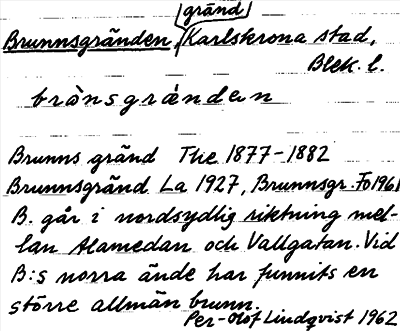 gränd
Brunnsgränden, Karlskrona stad,
Blek. l.
brònsgrànden
Brunns gränd The 1877-1882
Brunnsgränd La 1927, Brunnsgr. Fo 1961
B. går i nordsydlig riktning mel-
lan Alamedan och Vallgatan. Vid
B:s norra ände har funnits en
större allmän brunn.
Per-Olof Lindqvist 1962